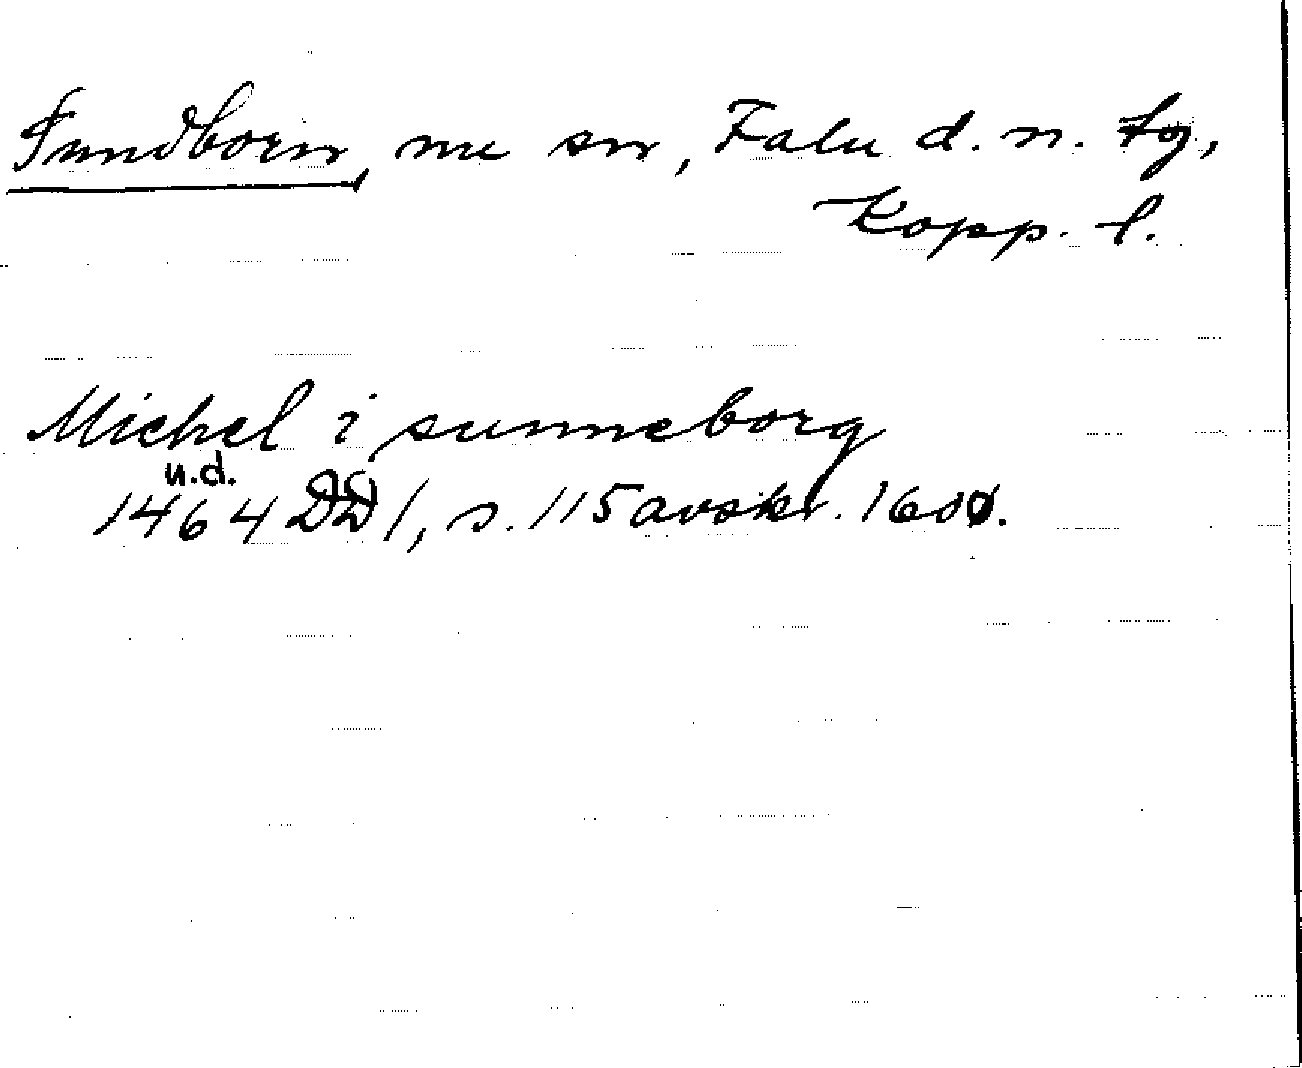 Sundborn, nu sn, Falu d. n. tg,
Kopp. l.
Michel i sunneborg
u.d.
1464 DD 1, s. 115 avskr. 1600.